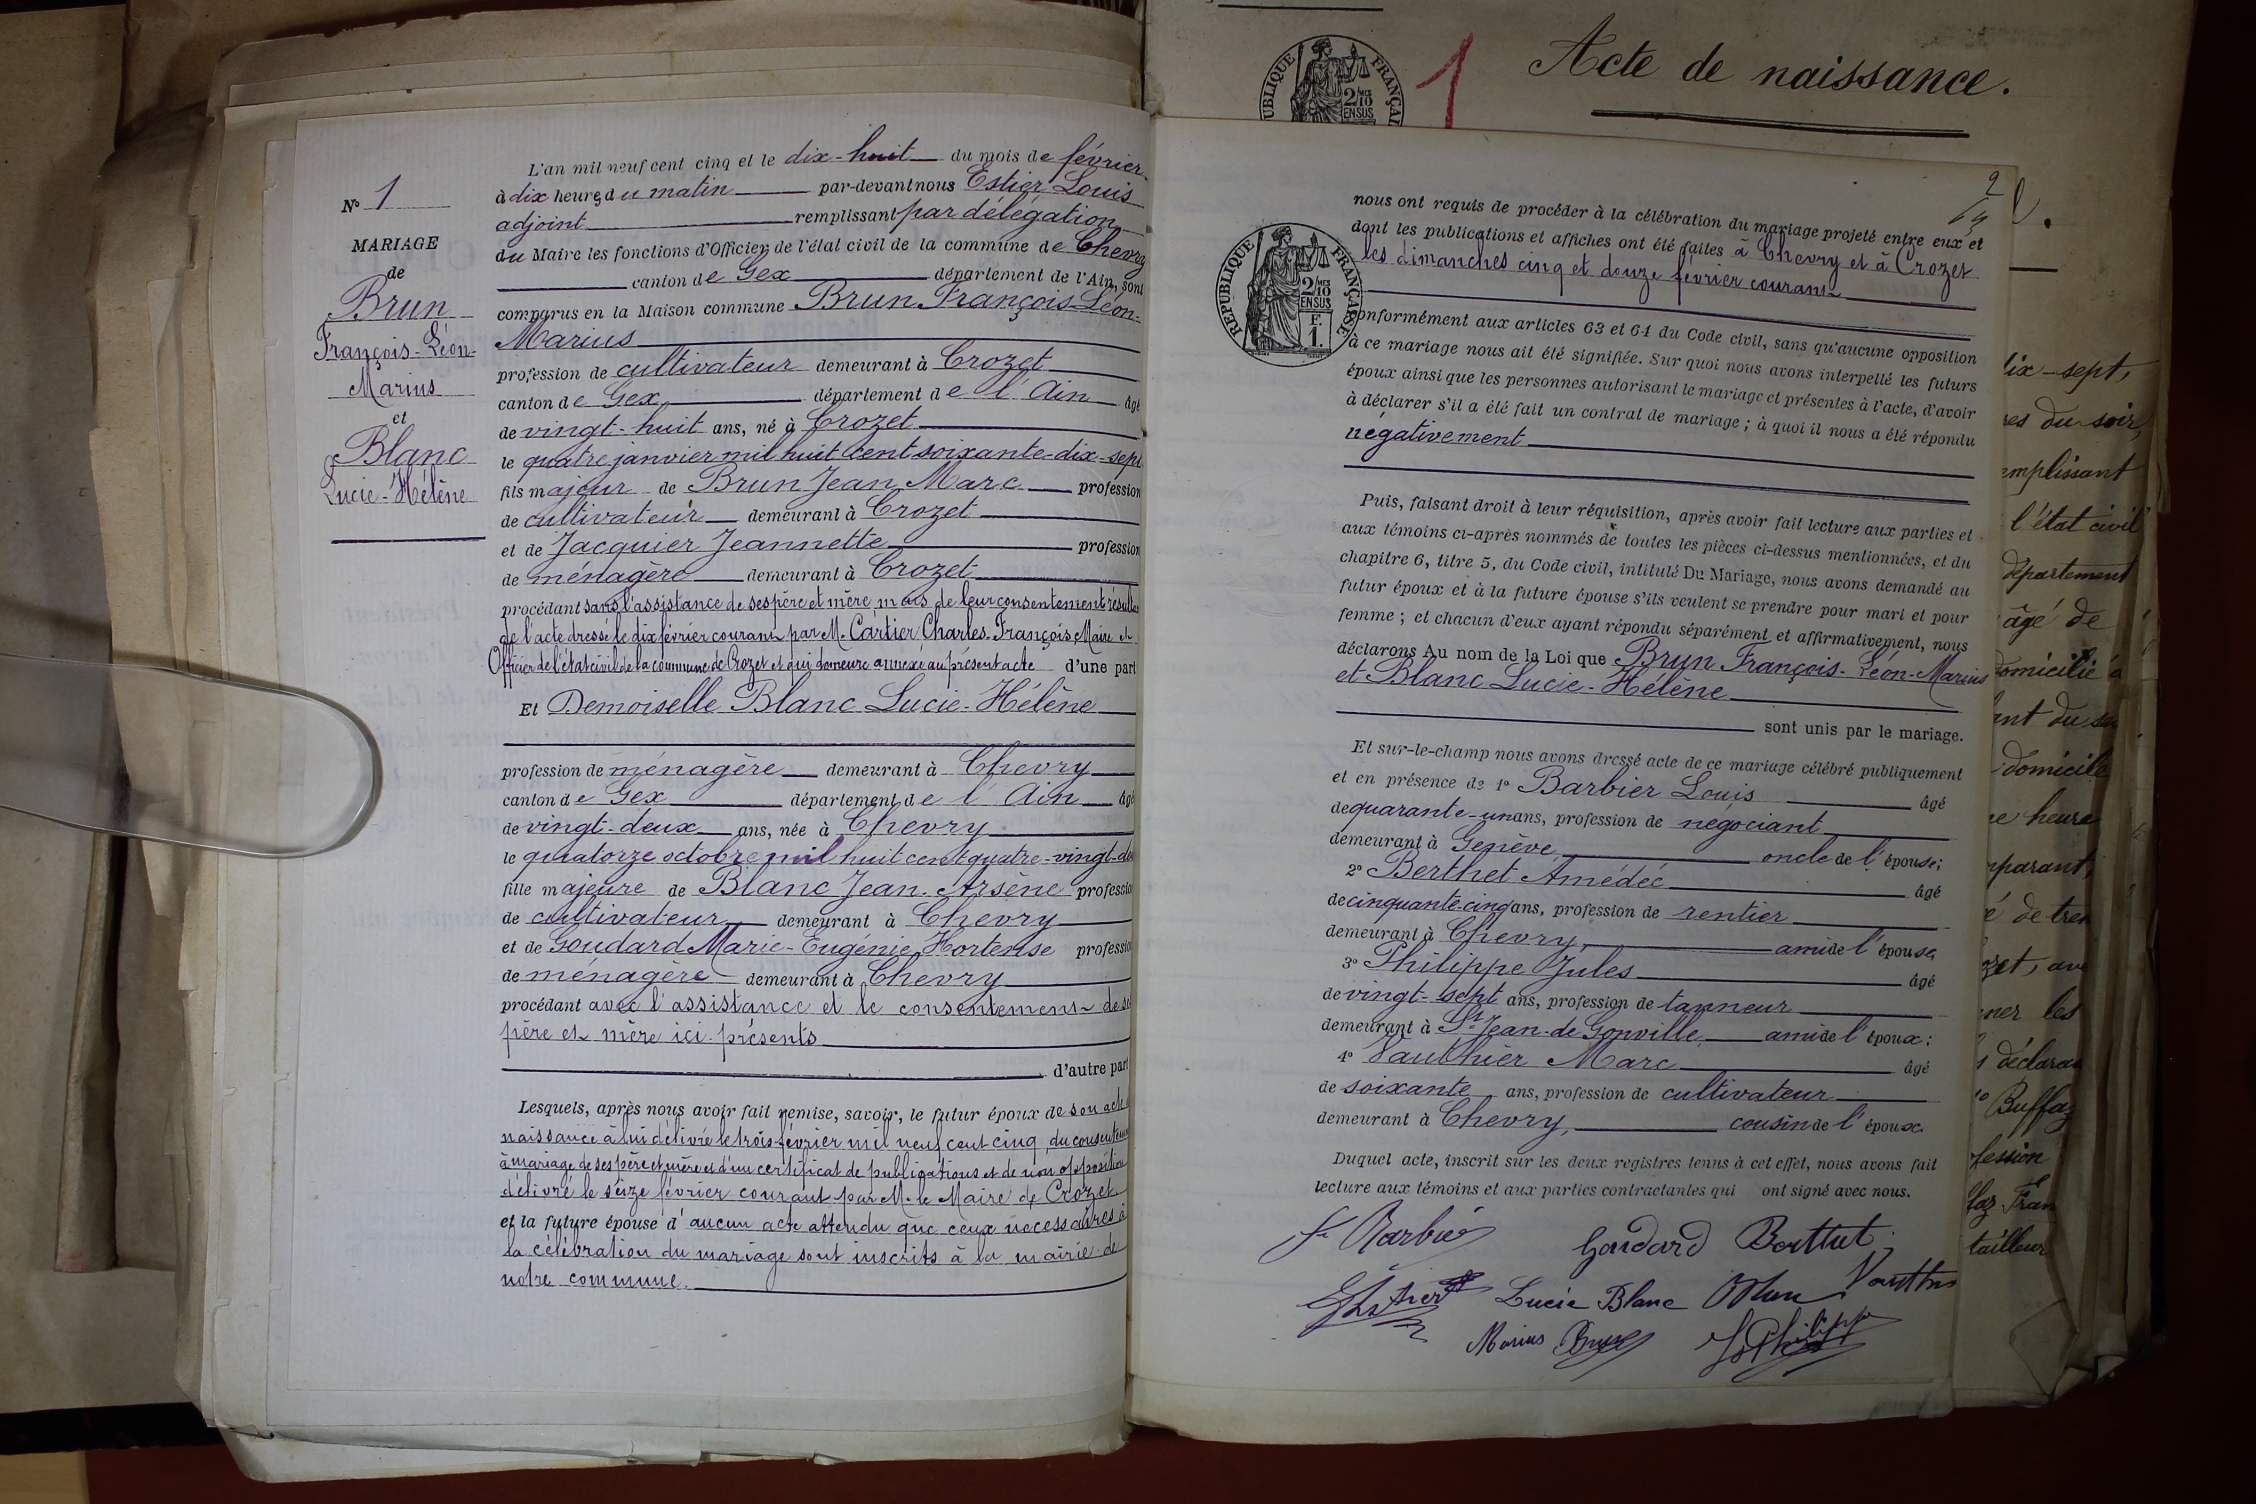 N° 1
MARIAGE
de
Brun
François-Léon-
Marius
et
Blanc
Lucie-Hélène
L'an mil neuf cent cinq et le dix-huit du mois de février
à dix heures du matin par-devant nous Estier Louis
adjoint remplissant par délégation
du Maire les fonctions d'Officier de l'état civil de la commune de Chevry
canton de Gex département de l'Ain, sont
comparus en la Maison commune Brun François-Léon-
Marius
profession de cultivateur demeurant à Crozet
canton de Gex département de l'Ain âgé
de vingt-huit ans, né à Crozet
le quatre janvier mil huit cent soixante-dix-sept
fils majeur de Brun Jean Marc profession
de cultivateur demeurant à Crozet
et de Jacquier Jeannette profession
de ménagère demeurant à Crozet
procédant sans l'assistance de ses père et mère mais de leur consentement résultant
de l'acte dressé le dix février courant par M. Cartier Charles-François, Maire et
Officier de l'état civil de la commune de Crozet et qui demeure annexé au présent acte d'une part
Et Demoiselle Blanc Lucie-Hélène
profession de ménagère demeurant à Chevry
canton de Gex département de l'Ain âgé
de vingt-deux ans, née à Chevry
le quatorze octobre mil huit cent quatre-vingt-deux
fille majeure de Blanc Jean-Arsène profession
de cultivateur demeurant à Chevry
et de Goudard Marie-Eugénie Hortense profession
de ménagère demeurant à Chevry
procédant avec l'assistance et le consentement de ses
père et mère ici présents
d'autre part
Lesquels, après nous avoir fait remise, savoir, le futur époux de son acte de
naissance à lui délivré le trois février mil neuf cent cinq, du consentement
à mariage de ses père et mère et d'un certificat de publications et de non opposition
délivré le seize février courant par M. le Maire de Crozet
et la future épouse d'aucun acte attendu que ceux nécessaires à
la célébration du mariage sont inscrits à la mairie de
notre commune.
Acte de naissance.
1
RÉPUBLIQUE FRANÇAISE
2/10 EN SUS
2
nous ont requis de procéder à la célébration du mariage projeté entre eux et
dont les publications et affiches ont été faites à Chevry et à Crozet
les dimanches cinq et douze février courant
RÉPUBLIQUE FRANÇAISE
2/10 EN SUS
F. 1.
conformément aux articles 63 et 64 du Code civil, sans qu'aucune opposition
à ce mariage nous ait été signifiée. Sur quoi nous avons interpellé les futurs
époux ainsi que les personnes autorisant le mariage et présentes à l'acte, d'avoir
à déclarer s'il a été fait un contrat de mariage ; à quoi il nous a été répondu
négativement
Puis, faisant droit à leur réquisition, après avoir fait lecture aux parties et
aux témoins ci-après nommés de toutes les pièces ci-dessus mentionnées, et du
chapitre 6, titre 5, du Code civil, intitulé Du Mariage, nous avons demandé au
futur époux et à la future épouse s'ils veulent se prendre pour mari et pour
femme ; et chacun d'eux ayant répondu séparément et affirmativement, nous
déclarons Au nom de la Loi que Brun François-Léon-Marius
et Blanc Lucie-Hélène
sont unis par le mariage.
Et sur-le-champ nous avons dressé acte de ce mariage célébré publiquement
et en présence de 1° Barbier Louis âgé
de quarante-un ans, profession de négociant
demeurant à Genève oncle de l'épouse ;
2° Berthet Amédée âgé
de cinquante-cinq ans, profession de rentier
demeurant à Chevry, ami de l'épouse,
3° Philippe Jules âgé
de vingt-sept ans, profession de tanneur
demeurant à St Jean-de-Gonville, ami de l'époux ;
4° Vauthier Marc âgé
de soixante ans, profession de cultivateur
demeurant à Chevry, cousin de l'épouse
Duquel acte, inscrit sur les deux registres tenus à cet effet, nous avons fait
lecture aux témoins et aux parties contractantes qui ont signé avec nous.
Goudard
Lucie Blanc
Marius Brun
J. Philippe
dix-sept,
du soir,
emplissant
l'état civil
département
âgé de
domicilié à
domicile
heure
mparant,
ner les
Buffaz
fession
tailleur